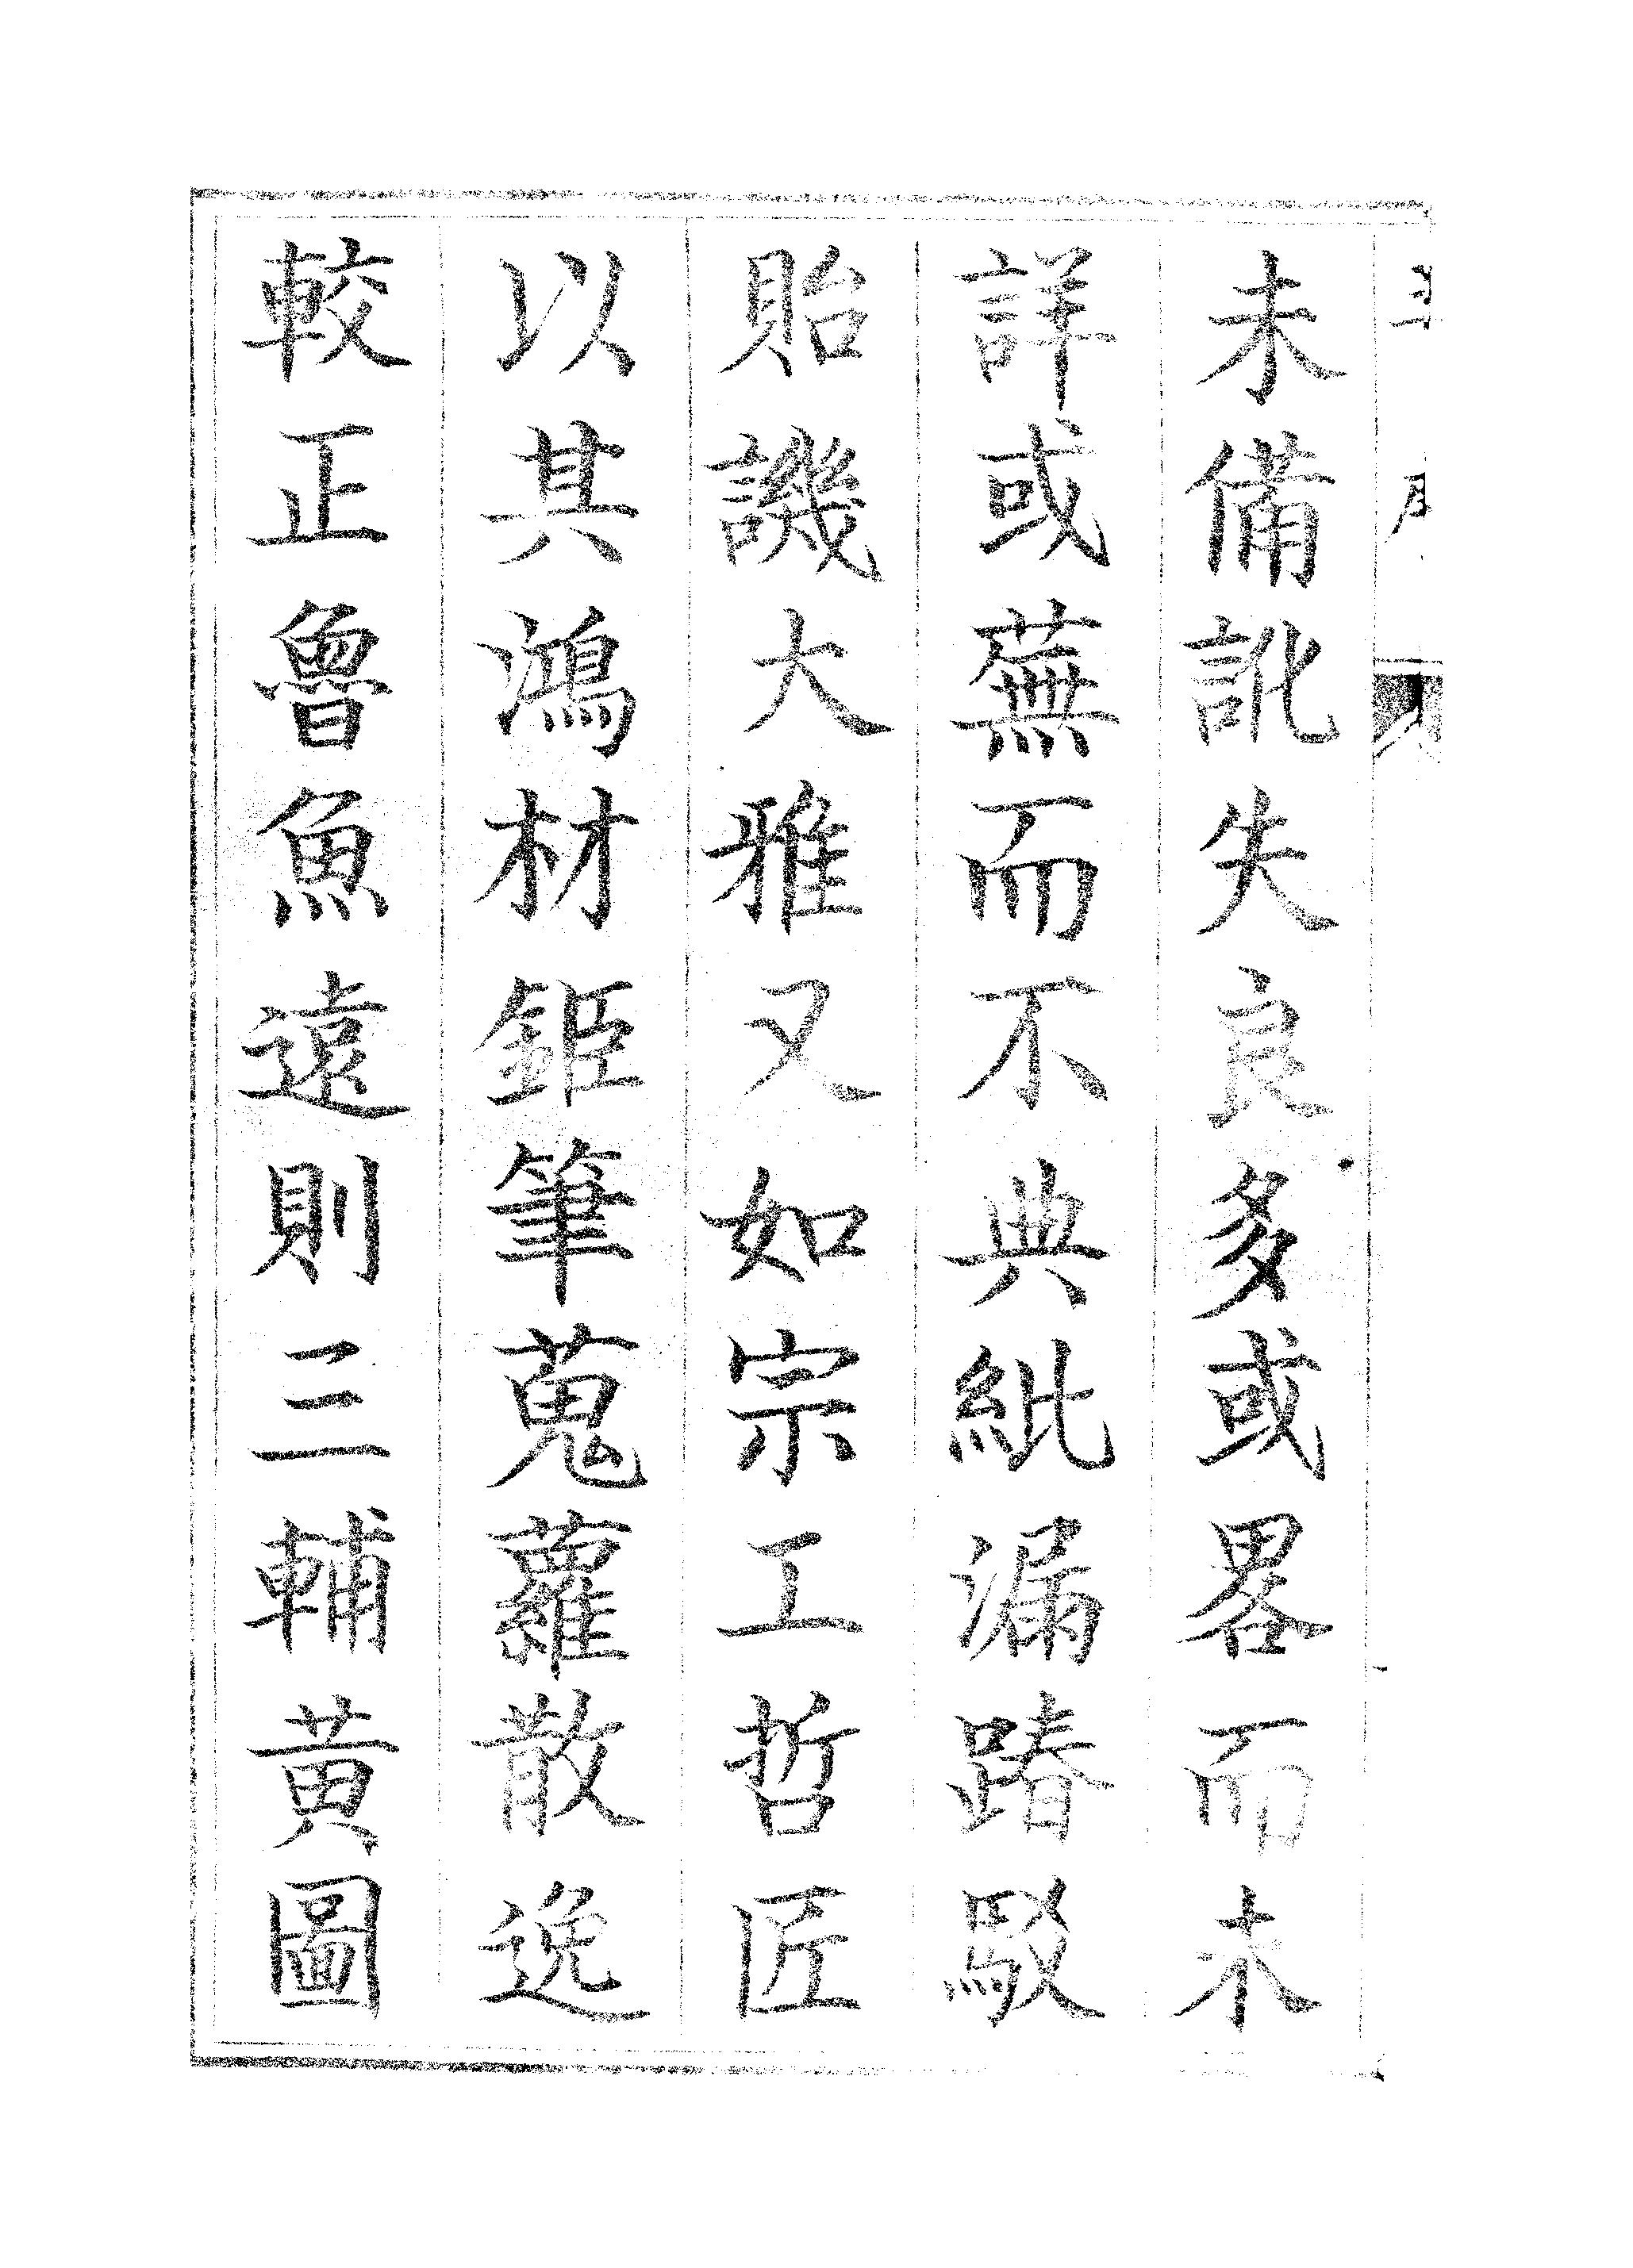 未備訛失良多或畧而未
詳或蕪而不典紕漏踳駁
貽譏大雅又如宗工哲匠
以其鴻材鉅筆蒐蘿散逸
較正魯魚遠則三輔黄圖